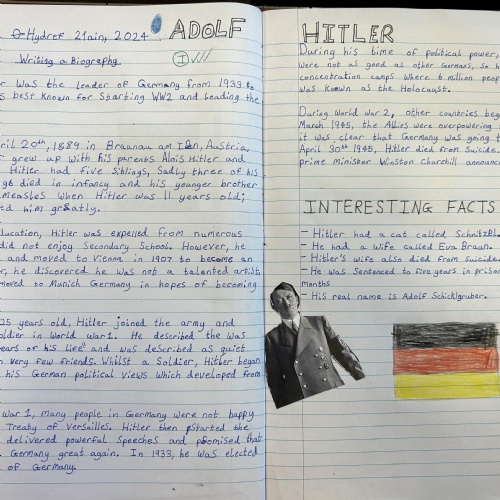 Hydref 21ain, 2024
ADOLF
Writing a Biography
r was the leader of Germany from 1933 to
s best known for starting WW2 and leading the
ril 20th, 1889 in Braunau am Inn, Austria,
r grew up with his parents Alois Hitler and
Hitler had five siblings, Sadly three of his
gs died in infancy and his younger brother
measles when Hitler was 11 years old;
ed him greatly.
ducation, Hitler was expelled from numerous
did not enjoy Secondary School. However, he
and moved to Vienna in 1907 to become an
r, he discovered he was not a talented artist
moved to Munich Germany in hopes of becoming
25 years old, Hitler joined the army and
oldier in World War 1. He described the was
ears of his life' and was described as quiet
h very few friends. Whilst a Soldier, Hitler began
his German political views which developed from
War 1, many people in Germany were not happy
Treaty of Versailles. Hitler then started the
delivered powerful speeches and promised that
Germany great again. In 1933, he was elected
of Germany.
HITLER
During his time of political power,
were not as good as other Germans, so h
concentration camps where 6 million peop
was known as the Holocaust.
During World War 2, other countries beg
March 1945, the Allies were overpowering
it was clear that Germany was going t
April 30th 1945, Hitler died from suicide.
prime Minister Winston Churchill announc
INTERESTING FACTS
- Hitler had a cat called Schnitzel.
- He had a wife called Eva Braun.
- Hitler's wife also died from suicide.
- He was sentenced to five years in prison
months
- His real name is Adolf Schicklgruber.